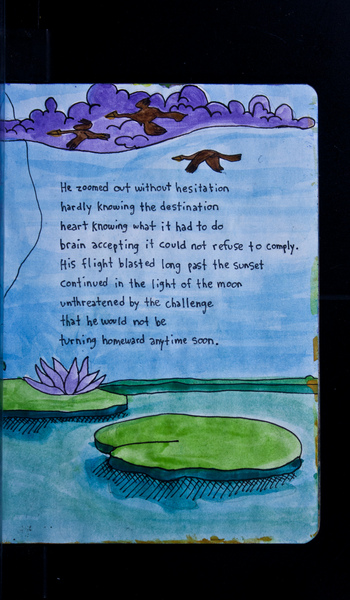 He zoomed out without hesitation
hardly knowing the destination
heart knowing what it had to do
brain accepting it could not refuse to comply.
His flight blasted long past the sunset
continued in the light of the moon
unthreatened by the challenge
that he would not be
turning homeward anytime soon.